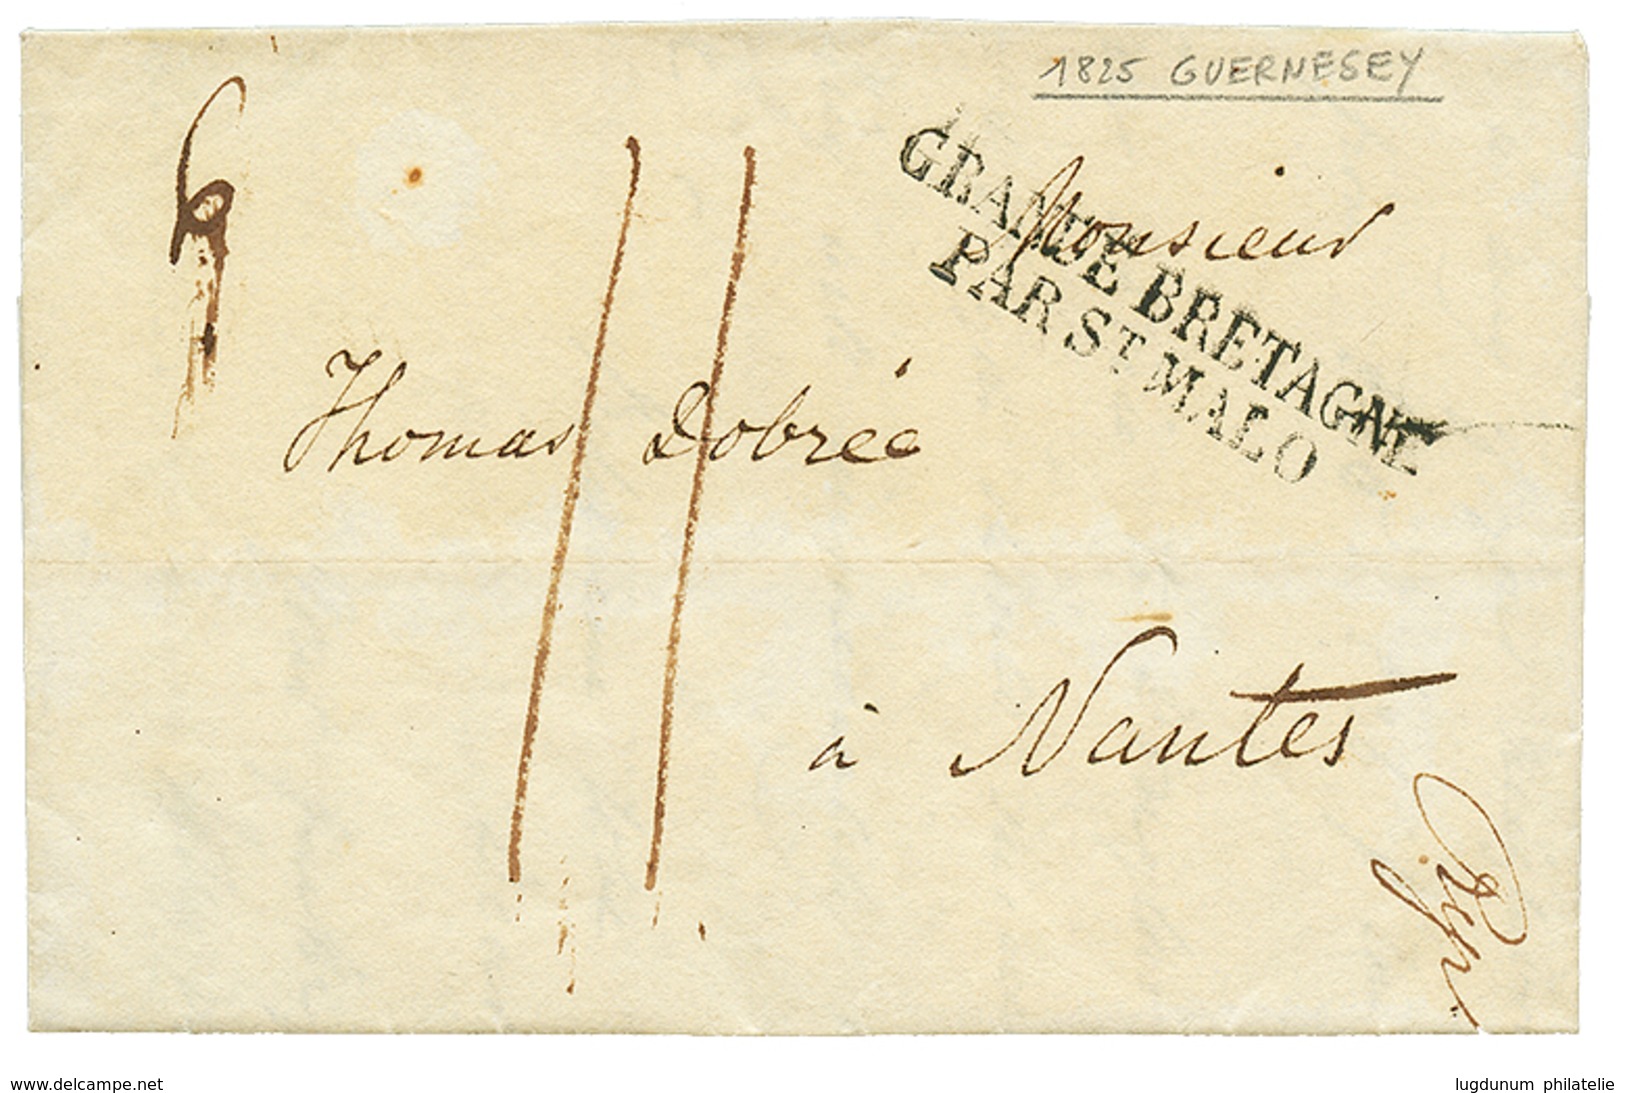 1825 GUERNESEY
GRANDE BRETAGNE
PAR ST MALO
Monsieur
Thomas Dobrée
à Nantes
6
11
www.delcampe.net
lugdunum philatelie